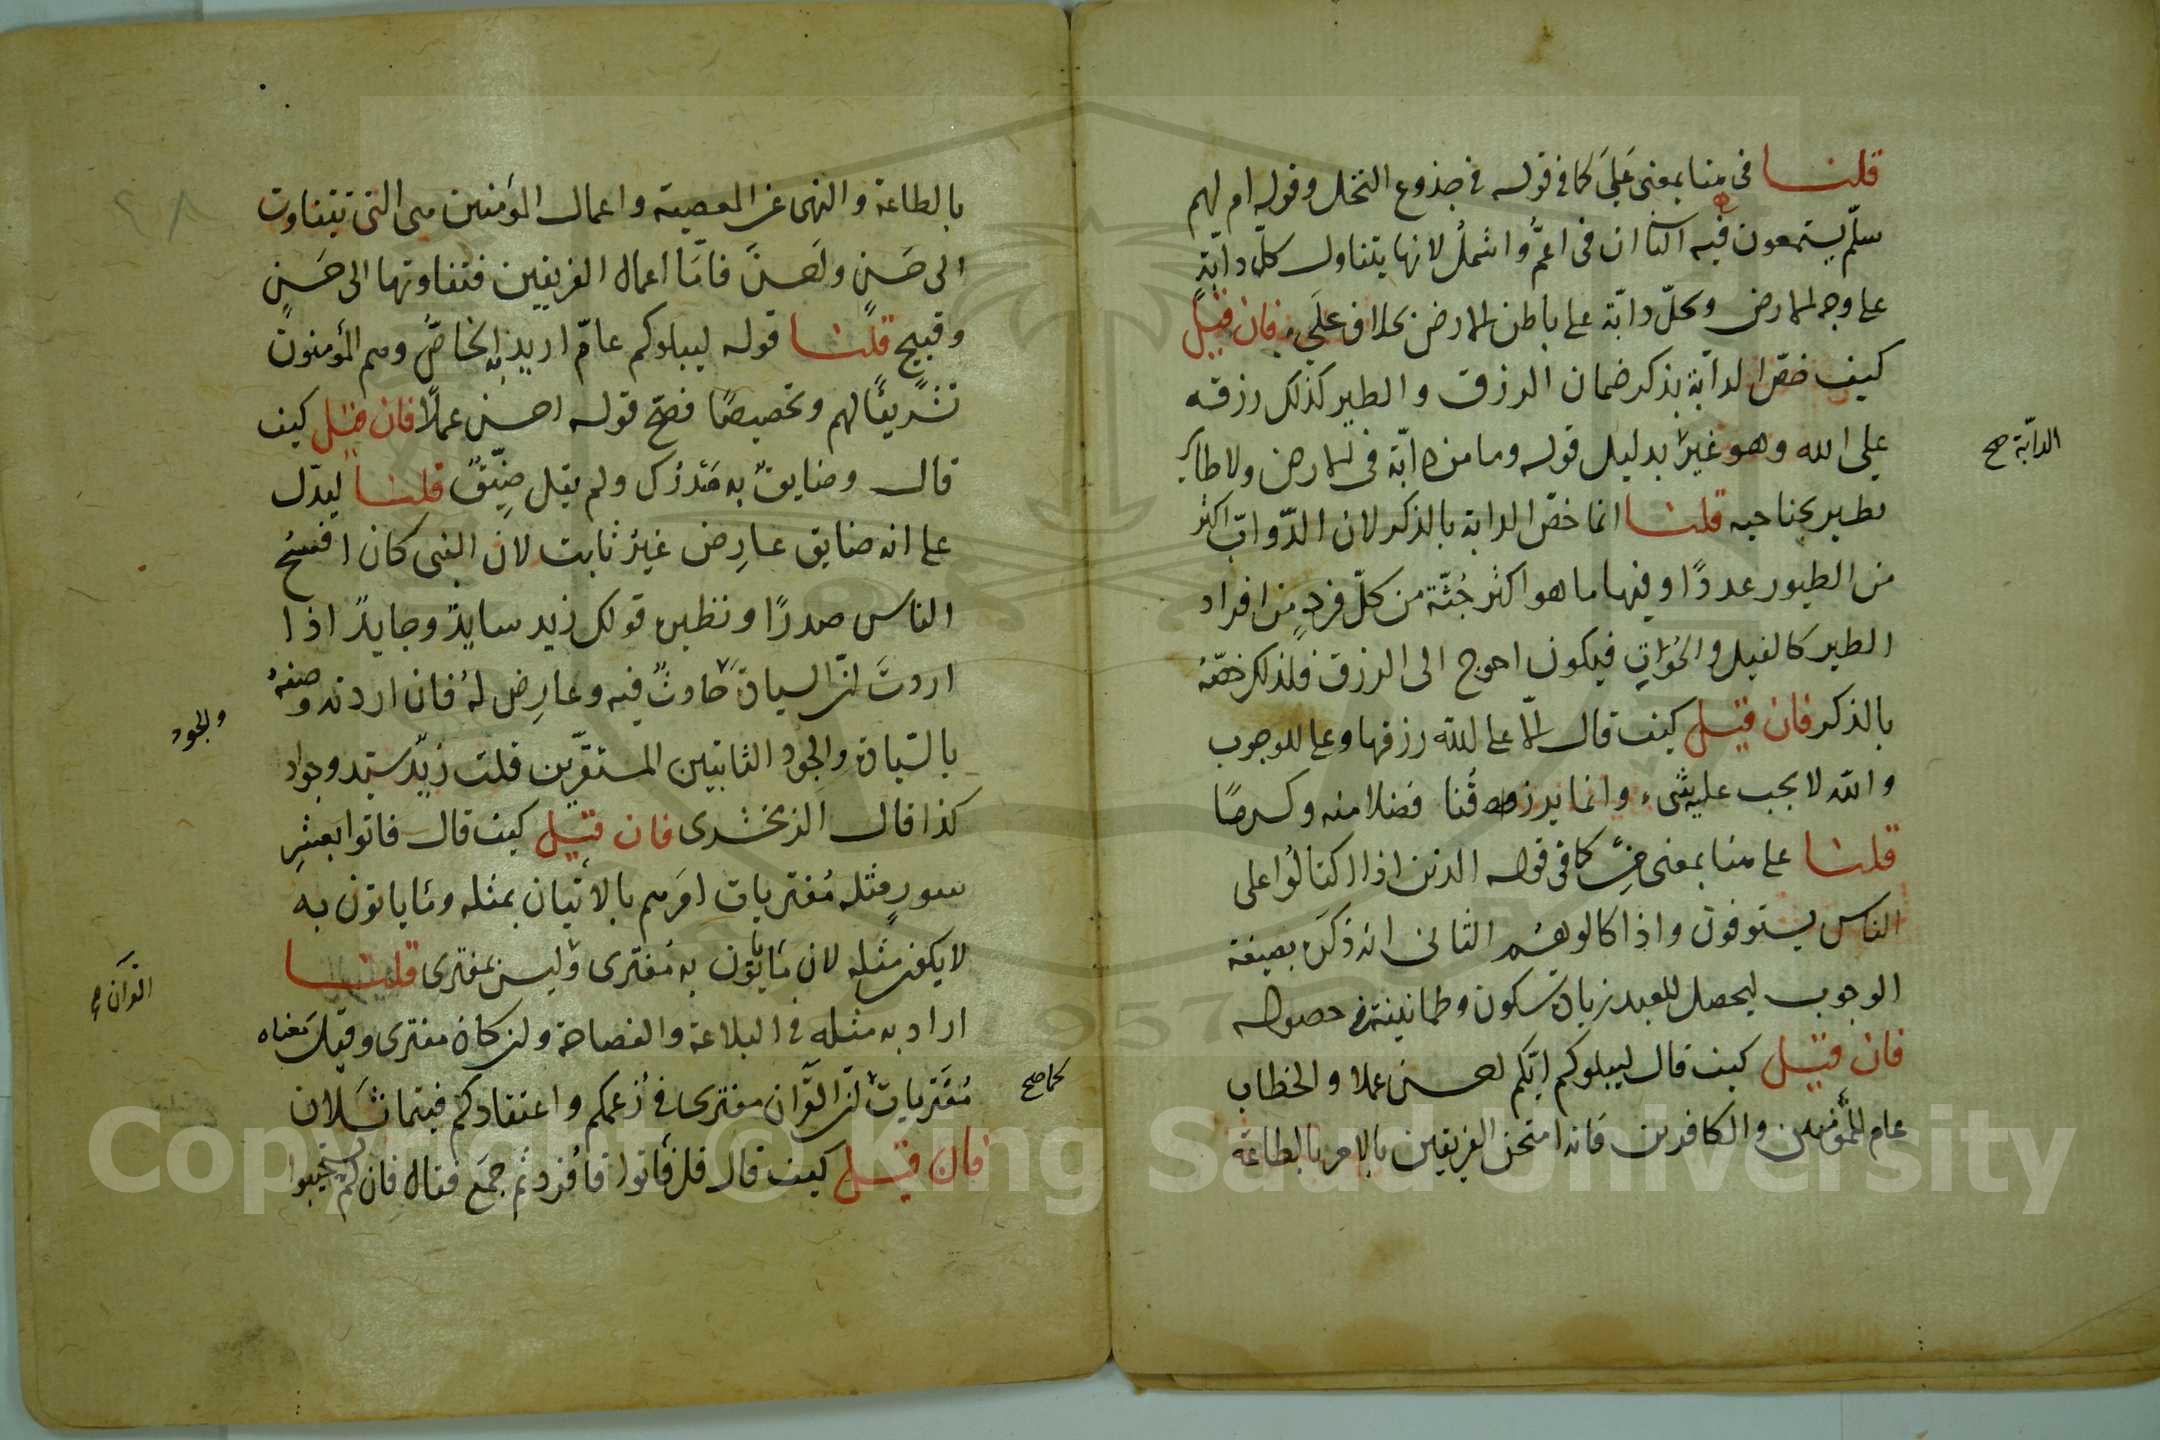 قلنا فى هنا بمعنى على كما فى قوله فى جذوع النخل وقوله ام لهم
سلّم يستمعون فيه الثانى ان فى اعمّ واشمل لانها يتناول كلّ دابّة
على وجه الارض وكلّ دابّة على باطن الارض بخلاف على فان قيل
كيف خصّ الدابّة بذكر ضمان الرزق والطير كذلك رزقه
الدابّة صح
على الله وهو غير بدليل قوله وما من دابّة فى الارض ولا طاير
يطير بجناحيه قلنا انما خصّ الدابة بالذكر لان الدّوابّ اكثر
من الطيور عددًا وفيها ما هو اكثر جُثّة من كلّ فردٍ من افراد
الطير كالفيل والحوت فيكون احوج الى الرزق فلذلك خصّه
بالذكر فان قيل كيف قال الّا على الله رزقها وعلى للوجوب
والله لا يجب عليه شىء وانما يرزقنا فضلا منه وكرمًا
قلنا على هنا بمعنى من كما فى قوله الذين اذا اكتالوا على
الناس يستوفون واذا كالوهم الثانى انه ذكره بصيغة
الوجوب ليحصل للعبد زيادة سكون وطمانينة فى حصوله
فان قيل كيف قال ليبلوكم ايّكم احسن عملا والخطاب
عام للمؤمنين والكافرين فانه امتحن الفريقين بالامر بالطاعة
بالطاعة والنهى عن المعصية واعمال المؤمنين هى التى تتفاوت
الى حَسَنٍ واَحسنَ فامّا اعمال الفريقين فتفاوتها الى حَسَنٍ
وقبيح قلنا قوله ليبلوكم عامّ اريد به الخاصّ وهم المؤمنون
تشريفًا لهم وتخصيصًا فصحّ قوله احسن عملًا فان قيل كيف
قال وضايق به صَدْرُك ولم يقل ضيّق قلنا ليدّل
على انه ضايق عارِض غير ثابت لان النبى كان افسح
الناس صدرًا ونظيره قولك زيد سايد وجايد اذا
اردتَ انّ السيادة حادث فيه وعارِض له فان اردت وصفه
والجود
بالسّيادة والجود الثابتين المستقرّين قلت زيد سيّد وجواد
كذا قال الزمخشرى فان قيل كيف قال فاتوا بعشرِ
سورٍ مثله مُفتريات اَمَرهم بالاتيان بمثله وما ياتون به
لا يكون مثله لان ما ياتون به مفترى وليس بمفترى قلنا
القرآن صح
اراد به مثله فى البلاغة والفصاحة وان كان مفترى وقيل معناه
مُفتريات انّ القرآن مفترى فى زعمكم واعتقادكم فيتماثلان
كما صح
فان قيل كيف قال قل فاتوا فافرد ثم جمع فقال فان لم يستجيبوا
Copyright © King Saud University
1957